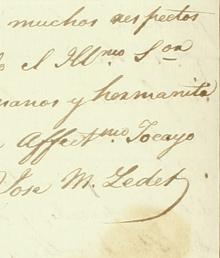 muchos respectos
el Illmo Sor
anos y hermanita
Affectmo Tocayo
Jose M. Ledet